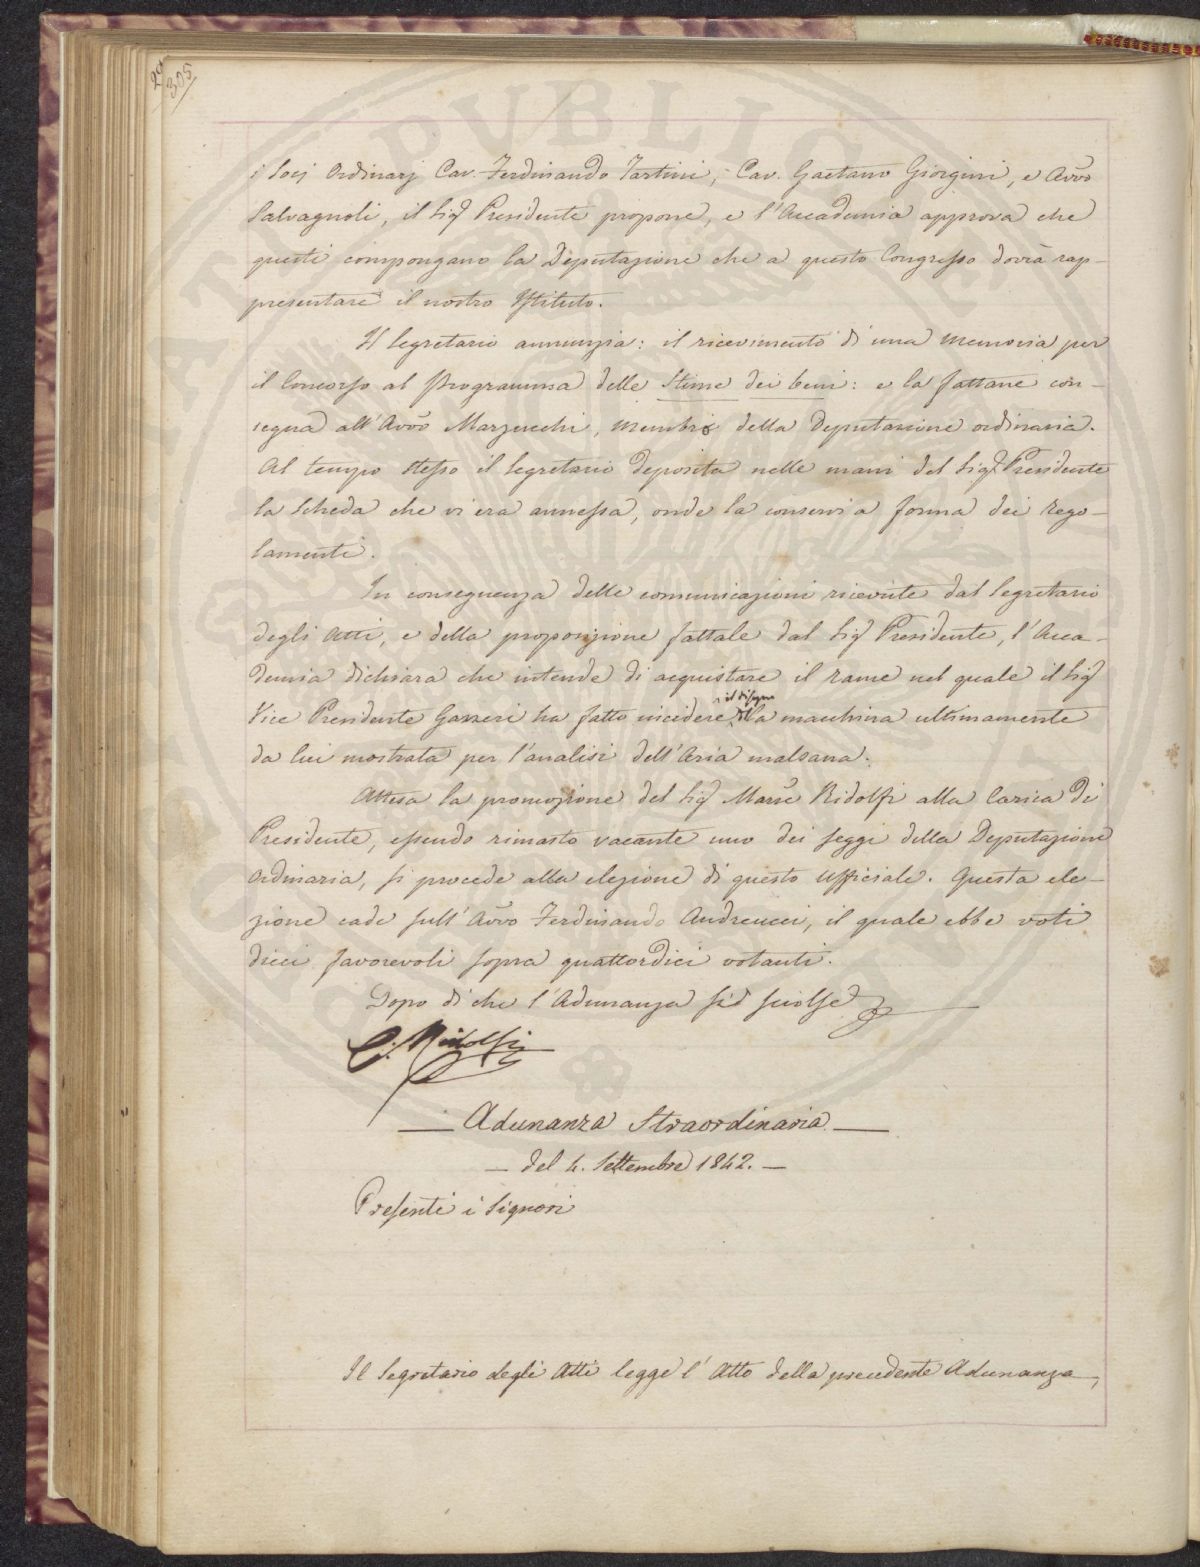 305
i Socj Ordinarj Cav. Ferdinando Tartini, Cav. Gaetano Giorgini, e Avvo
Salvagnoli, il Sigr Presidente propone, e l'Accademia approva che
questi compongano la Deputazione che a questo Congresso dovrà rap-
presentare il nostro Istituto.
Il Segretario annunzia: il ricevimento di una memoria per
il Concorso al Programma delle Stime dei beni: e la fattane con-
segna all'Avvo Marzucchi, membro della Deputazione ordinaria.
Al tempo stesso il Segretario deposita nelle mani del Sigr Presidente
la Scheda che vi era annessa, onde la conservi a forma dei Rego-
lamenti.
In conseguenza delle comunicazioni ricevute dal Segretario
degli Atti, e della proposizione fattale dal Sigr Presidente, l'Acca-
demia dichiara che intende di acquistare il rame nel quale il Sigr
Vice Presidente Gazzeri ha fatto incidere il disegno della macchina ultimamente
da lui mostrata per l'analisi dell'Aria malsana.
Attesa la promozione del Sigr Marse Ridolfi alla Carica di
Presidente, essendo rimasto vacante uno dei seggi della Deputazione
Ordinaria, si procede alla elezione di questo Ufficiale. Questa ele-
zione cade sull'Avvo Ferdinando Andreucci, il quale ebbe voti
dieci favorevoli sopra quattordici votanti.
Dopo di che l'Adunanza si è sciolse
C. Ridolfi
— Adunanza Straordinaria —
— del 4. Settembre 1842. —
Presenti i Signori
Il Segretario degli Atti legge l'Atto della precedente Adunanza,
PUBLIC